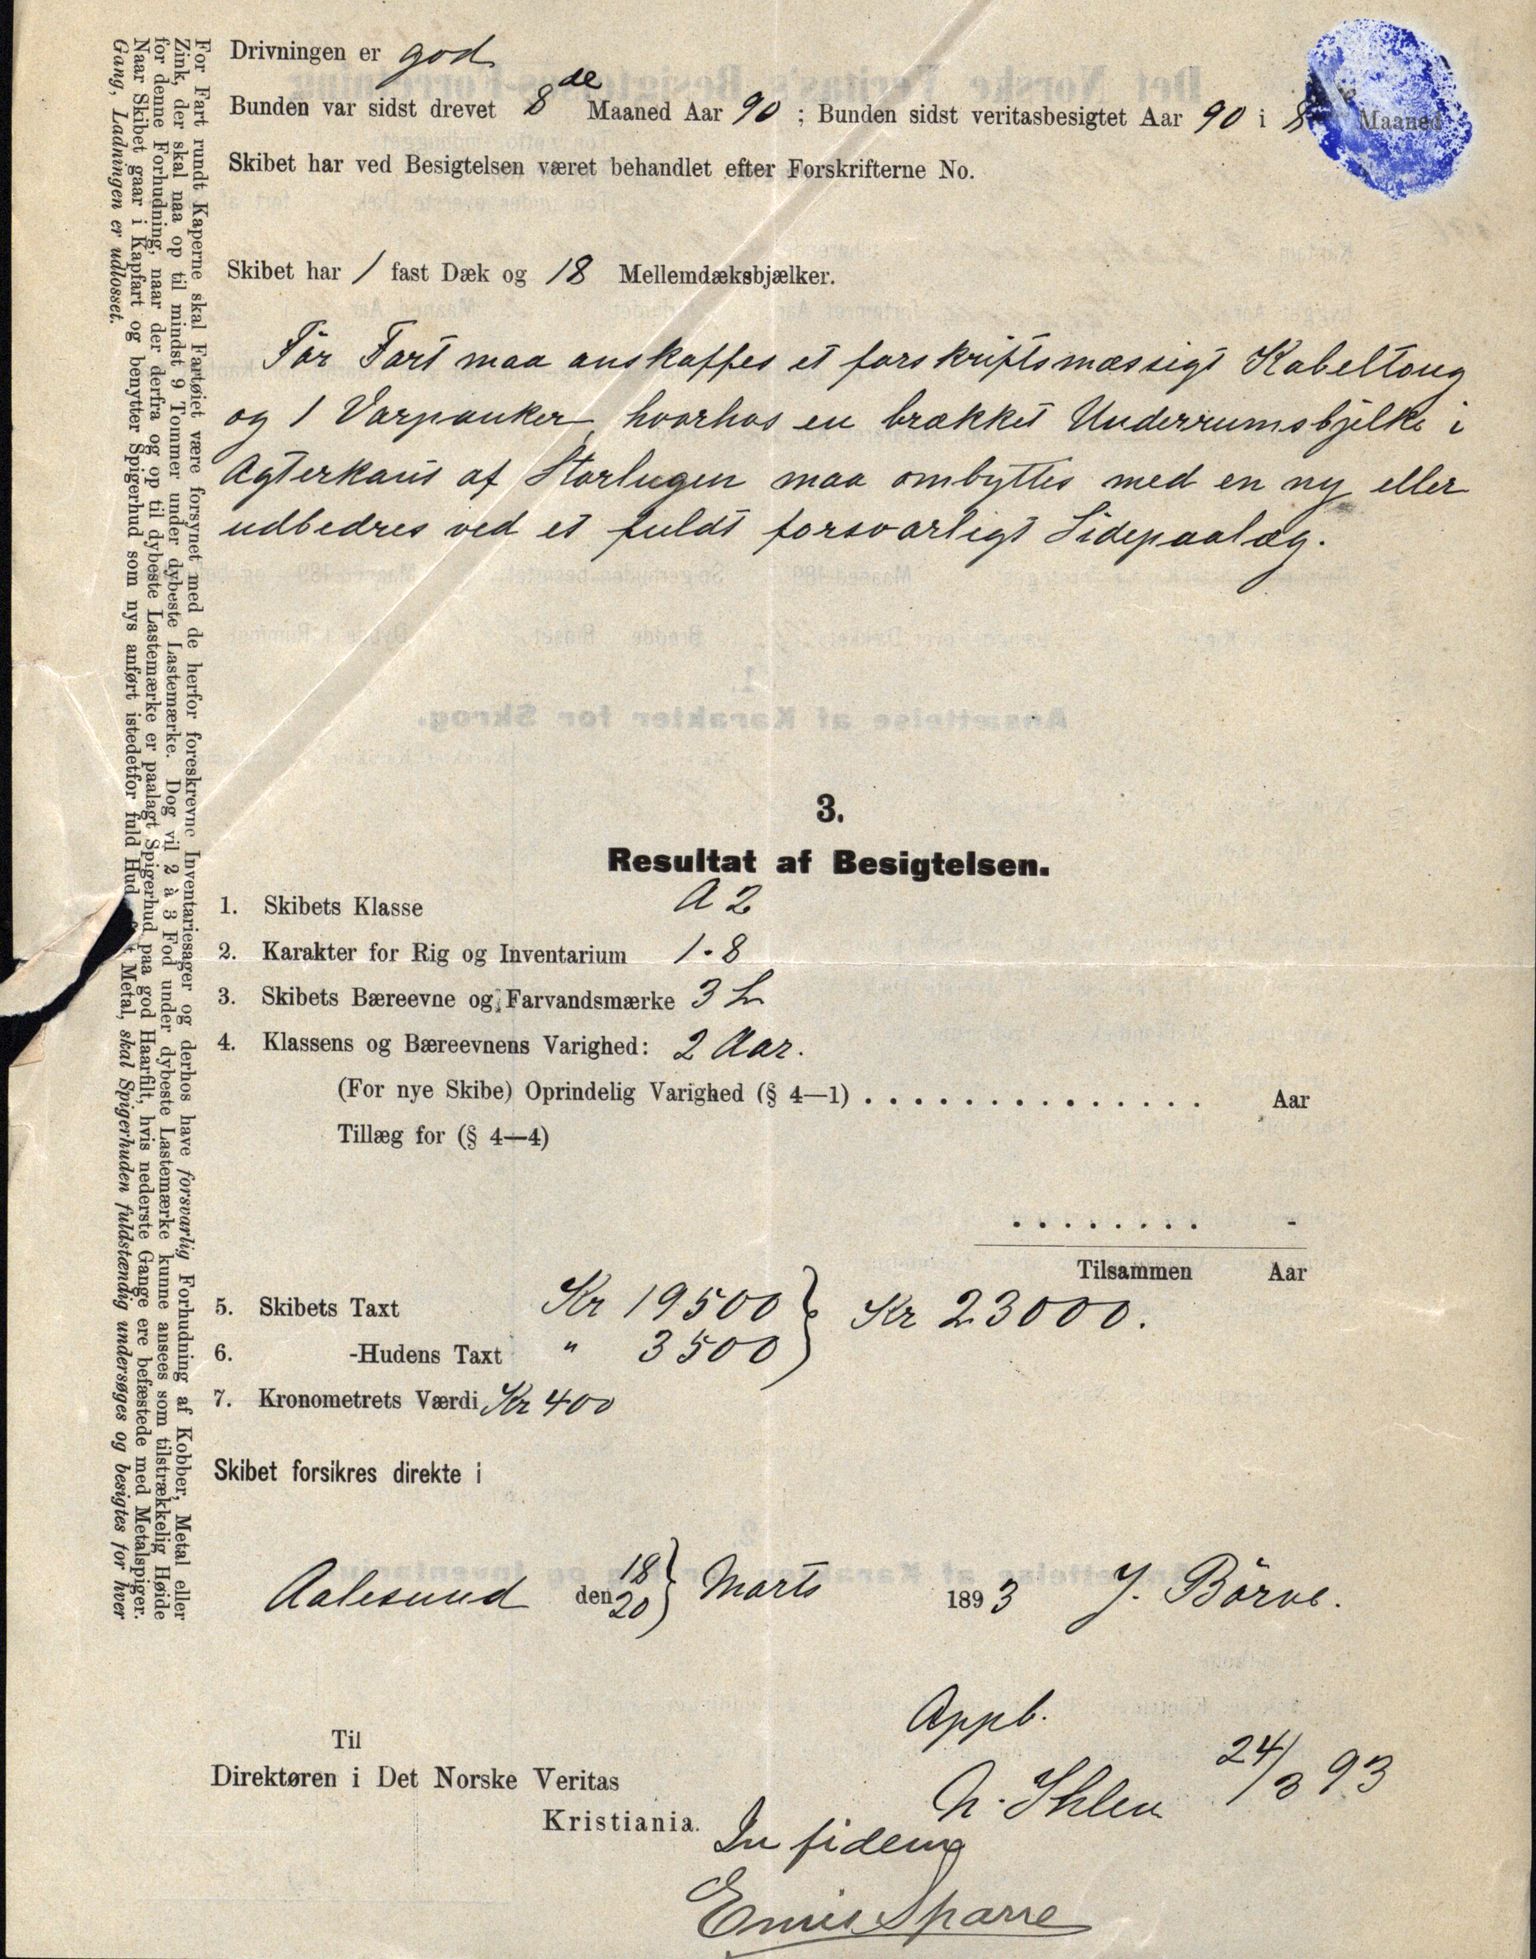 Drivningen er god
Bunden var sidst drevet 8de Maaned Aar 90 ; Bunden sidst veritasbesigtet Aar 90 i 8 Maaned
Skibet har ved Besigtelsen været behandlet efter Forskrifterne No.
Skibet har 1 fast Dæk og 18 Mellemdæksbjælker.
Før Fart maa anskaffes et forskriftsmæssigt Kabeltoug
og 1 Varpanker, hvorhos en brækket Underrumsbjelke i
Agterkant af Storlugen maa ombyttes med en ny eller
udbedres ved et fuldt forsvarligt Sidepaalæg.
3.
Resultat af Besigtelsen.
1. Skibets Klasse A 2
2. Karakter for Rig og Inventarium 1·8
3. Skibets Bæreevne og Farvandsmærke 3 L
4. Klassens og Bæreevnens Varighed: 2 Aar.
(For nye Skibe) Oprindelig Varighed (§ 4—1) . . . . . . . . . . . . . . . Aar
Tillæg for (§ 4—4)
. . . . . . . . -
Tilsammen Aar
5. Skibets Taxt Kr 19500 } Kr 23000.
6. -Hudens Taxt " 3500
7. Kronometrets Værdi Kr 400
Skibet forsikres direkte i
Aalesund den 18/20 } Marts 1893 J. Börve.
Appb.
N. Ihlen 24/3 93
Til
Direktøren i Det Norske Veritas
Kristiania.
In fidem
Sparre
For Fart rundt Kaperne skal Fartøiet være forsynet med de herfor foreskrevne Inventariesager og derhos have forsvarlig Forhudning af Kobber, Metal eller
Zink, der skal naa op til mindst 9 Tommer under dybeste Lastemærke. Dog vil 2 à 3 Fod under dybeste Lastemærke kunne ansees som tilstrækkelig Høide
for denne Forhudning, naar der derfra og op til dybeste Lastemærke er paalagt Spigerhud paa god Haarfilt, hvis nederste Gange ere befæstede med Metalspiger.
Naar Skibet gaar i Kapfart og benytter Spigerhud som nys anført istedetfor fuld Hud Metal, skal Spigerhuden fuldstændig undersøges og besigtes for hver
Gang, Ladningen er udlosset.